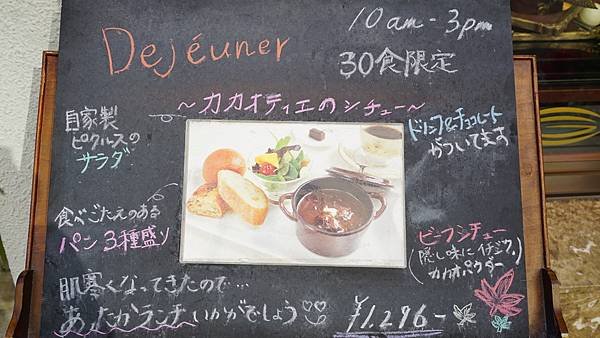 Dejéuner
10am-3pm
30食限定
～カカオティエのシチュー～
自家製
ピクルスの
サラダ
ドリンク&チョコレート
がついてます
食べごたえのある
パン3種盛り
ビーフシチュー
(隠し味にイチジク,
カカオパウダー)
肌寒くなってきたので…
あったかランチいかがでしょう♡♡
¥1,296-